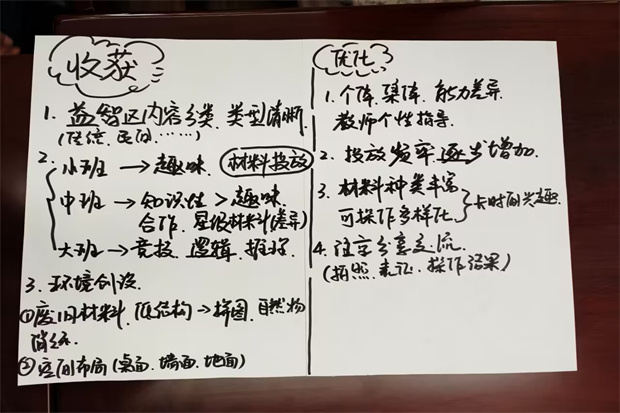 收获
1. 益智区内容分类、类型清晰
(传统、民间……)
2. 小班→趣味 材料投放
中班→知识性>趣味
合作、星级材料(差异)
大班→竞技、逻辑、推理
3. 环境创设
①废旧材料、低结构→拼图、自然物
②空间布局(桌面、墙面、地面)
优化
1. 个体、集体、能力差异
教师个性指导.
2. 投放频率逐步增加.
3. 材料种类丰富
可操作多样化 长时间兴趣
4. 注重分享交流
(拍照、表征、操作结果)